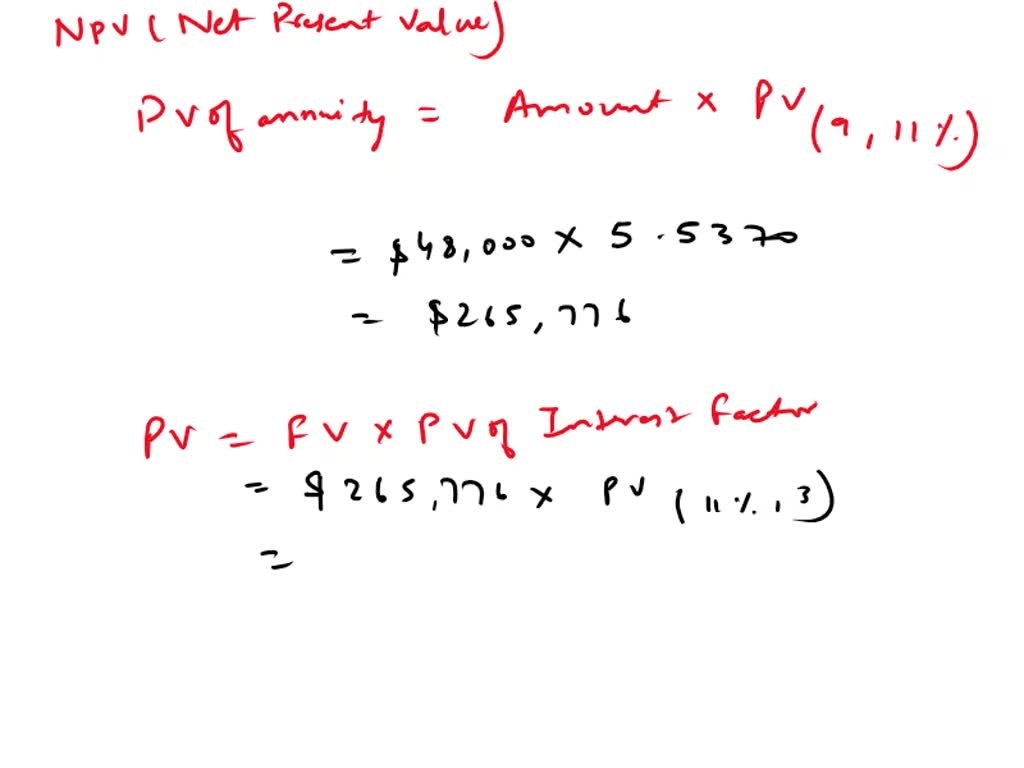 NPV ( Net Present Value)
PV of annuity = Amount × PV (9, 11%)
= $48,000 × 5.5370
= $265,776
PV = FV × PV of Interest factor
= $265,776 × PV (11%, 3)
=